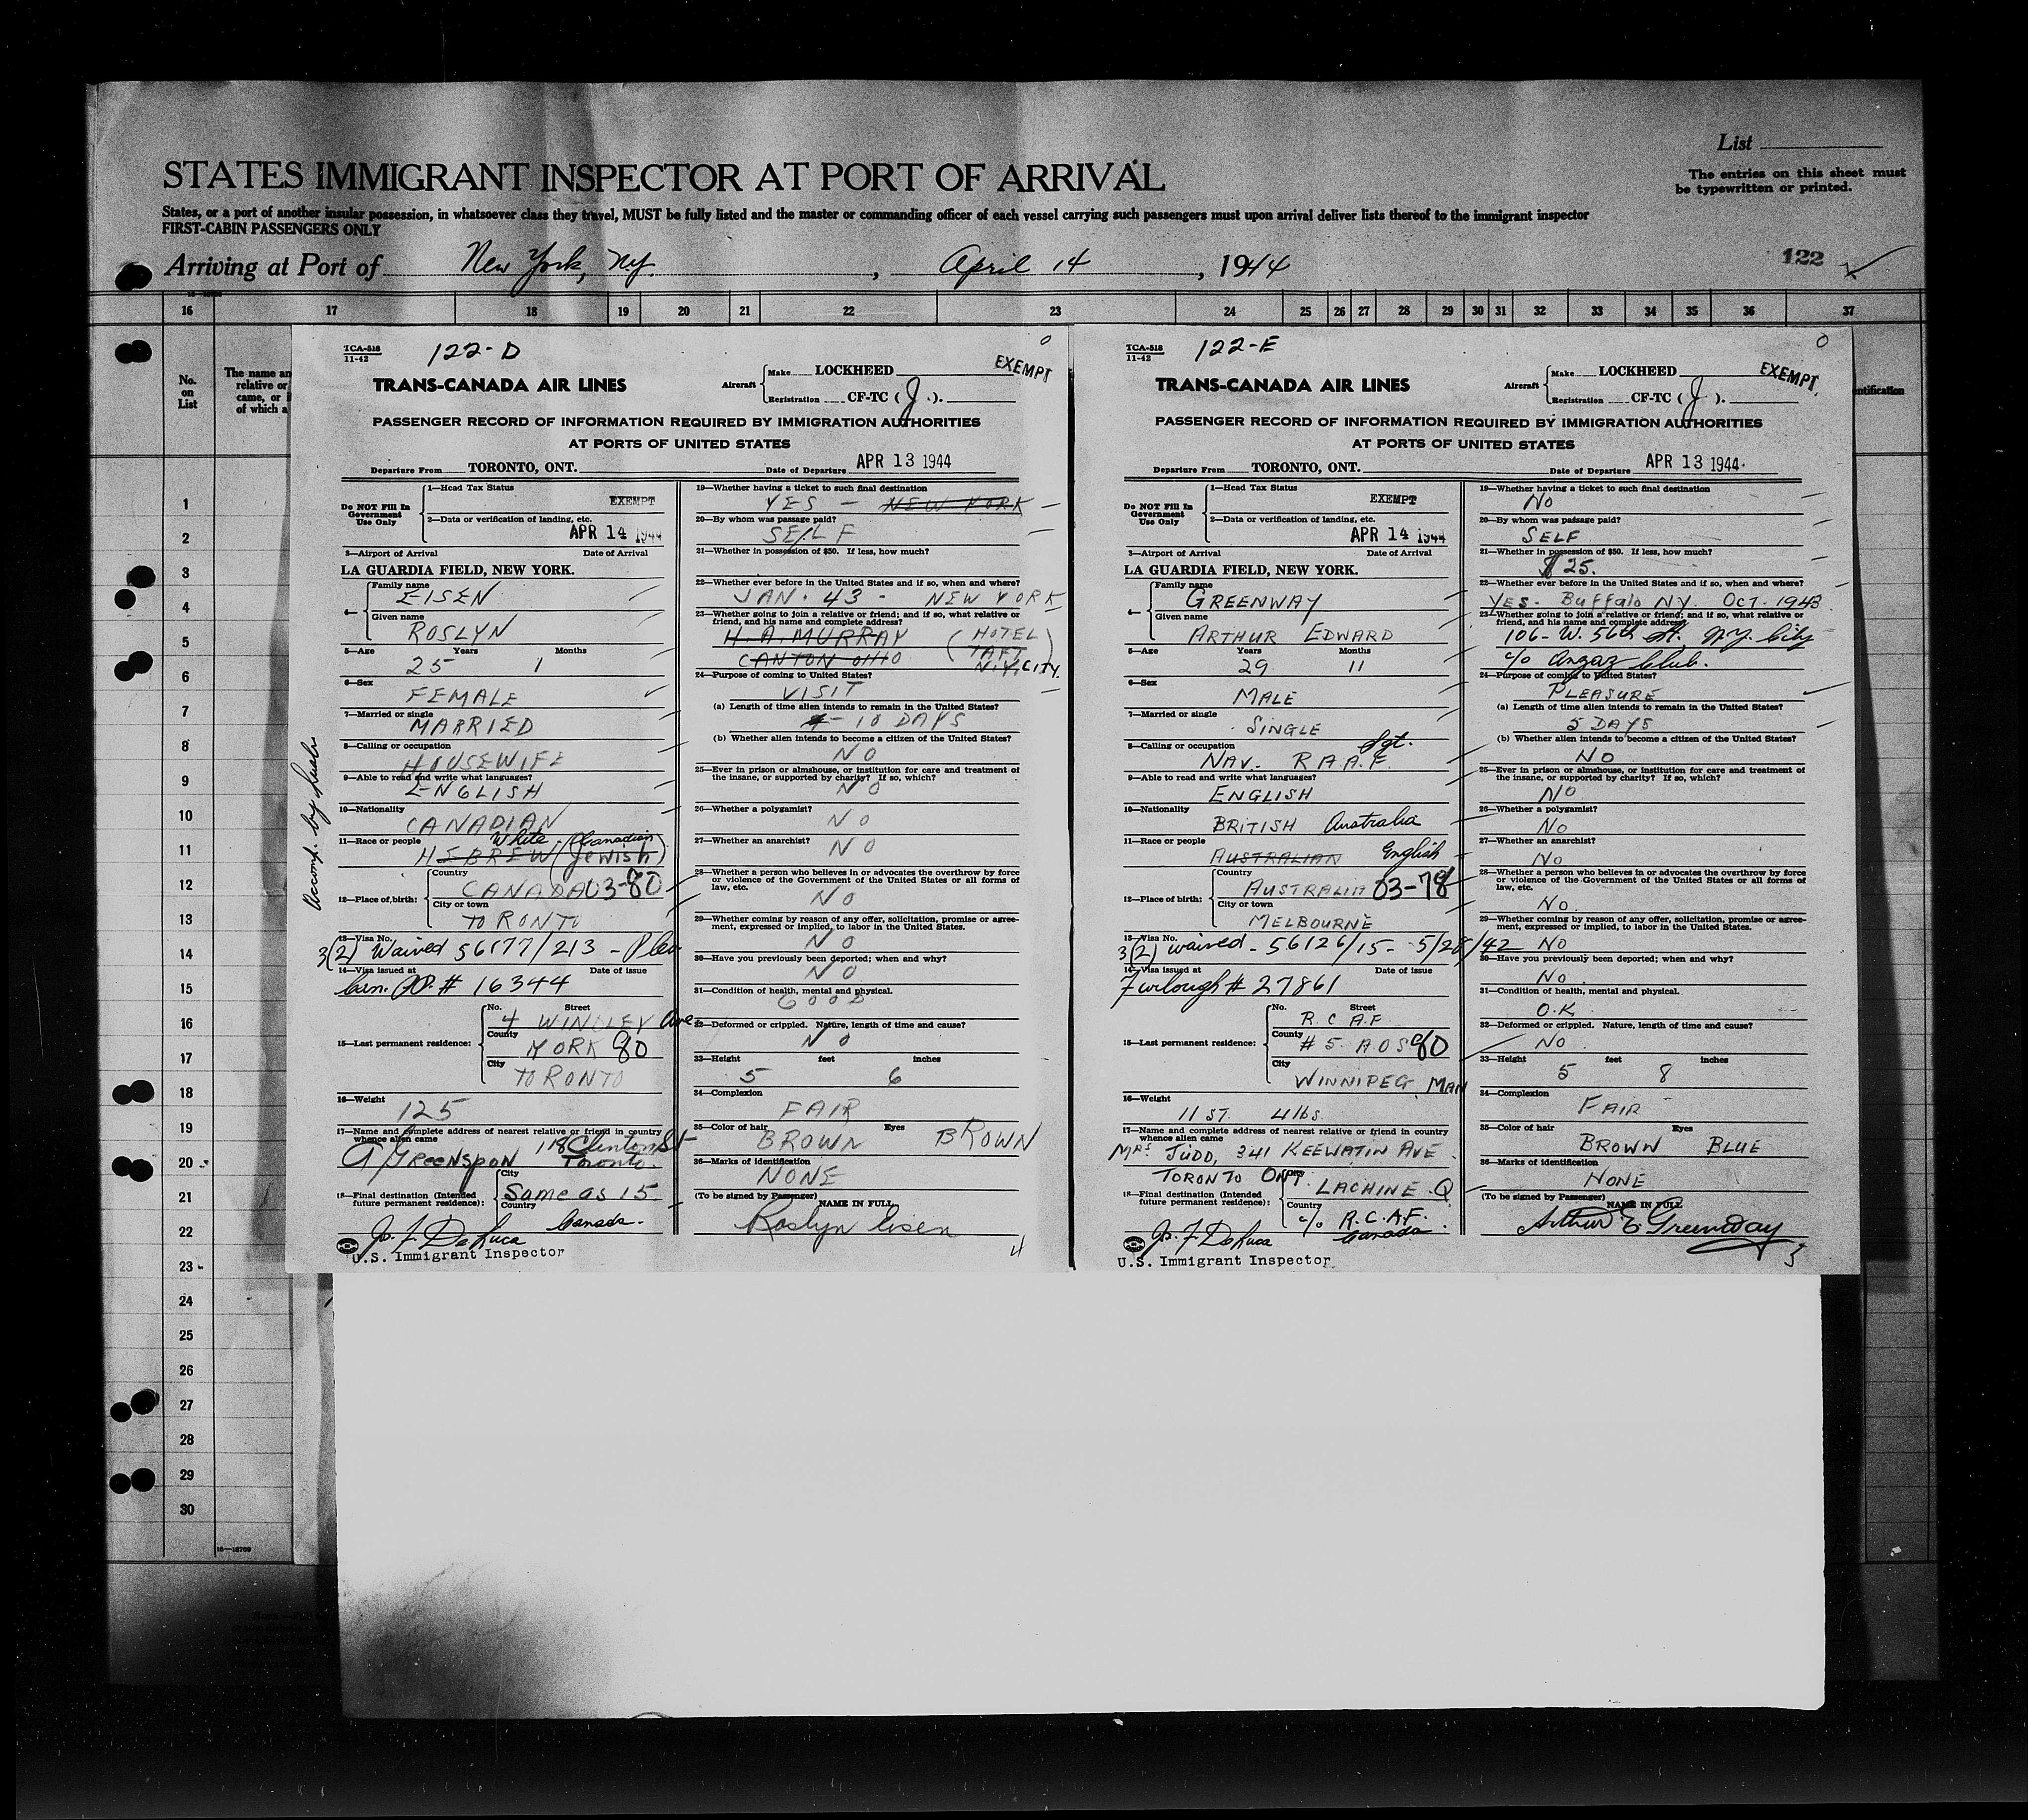 List
STATES IMMIGRANT INSPECTOR AT PORT OF ARRIVAL
The entries on this sheet must
be typewritten or printed.
States, or a port of another insular possession, in whatsoever class they travel, MUST be fully listed and the master or commanding officer of each vessel carrying such passengers must upon arrival deliver lists thereof to the immigrant inspector
FIRST-CABIN PASSENGERS ONLY
Arriving at Port of New York, NY, April 14, 1944
122
16 17 18 19 20 21 22 23 24 25 26 27 28 29 30 31 32 33 34 35 36 37
No.
on
List
The name an
relative or
came, or i
of which a
ntification
1
2
3
4
5
6
7
8
9
10
11
12
13
14
15
16
17
18
19
20
21
22
23
24
25
26
27
28
29
30
16—18709
TCA-518
11-42
122-D
EXEMPT
TRANS-CANADA AIR LINES
Aircraft
Make LOCKHEED
Registration CF-TC (J).
PASSENGER RECORD OF INFORMATION REQUIRED BY IMMIGRATION AUTHORITIES
AT PORTS OF UNITED STATES
Departure From TORONTO, ONT. Date of Departure APR 13 1944
Do NOT Fill In
Government
Use Only
1—Head Tax Status
EXEMPT
2—Data or verification of landing, etc.
APR 14 1944
3—Airport of Arrival Date of Arrival
LA GUARDIA FIELD, NEW YORK.
4— Family name
EISEN
Given name
ROSLYN
5—Age Years Months
25 1
6—Sex
FEMALE
7—Married or single
MARRIED
8—Calling or occupation
HOUSEWIFE
9—Able to read and write what languages?
ENGLISH
10—Nationality
CANADIAN
11—Race or people White Canadian
HEBREW (Jewish)
12—Place of birth:
Country
CANADA 03-80
City or town
TORONTO
13—Visa No.
3(2) Waived 56177/213 - Plea
14—Visa issued at Date of issue
# 16344
15—Last permanent residence:
No. Street
4 WINGLEY Ave
County
YORK 80
City
TORONTO
16—Weight
125
17—Name and complete address of nearest relative or friend in country
whence alien came
118 Clinton St
G GREENSPON Toronto.
18—Final destination (Intended
future permanent residence):
City
Same as 15
Country
Canada.
J. F. DeLuca
U.S. Immigrant Inspector
Accomp. by
19—Whether having a ticket to such final destination
YES - NEW YORK
20—By whom was passage paid?
SELF
21—Whether in possession of $50. If less, how much?
22—Whether ever before in the United States and if so, when and where?
JAN. 43 - NEW YORK
23—Whether going to join a relative or friend; and if so, what relative or
friend, and his name and complete address?
H. A. MURRAY (HOTEL
CANTON OHIO TAFT)
N.Y. CITY.
24—Purpose of coming to United States?
VISIT
(a) Length of time alien intends to remain in the United States?
10 DAYS
(b) Whether alien intends to become a citizen of the United States?
NO
25—Ever in prison or almshouse, or institution for care and treatment of
the insane, or supported by charity? If so, which?
NO
26—Whether a polygamist?
NO
27—Whether an anarchist?
NO
28—Whether a person who believes in or advocates the overthrow by force
or violence of the Government of the United States or all forms of
law, etc.
NO
29—Whether coming by reason of any offer, solicitation, promise or agree-
ment, expressed or implied, to labor in the United States.
NO
30—Have you previously been deported; when and why?
NO
31—Condition of health, mental and physical.
GOOD
32—Deformed or crippled. Nature, length of time and cause?
NO
33—Height feet inches
5 6
34—Complexion
FAIR
35—Color of hair Eyes
BROWN BROWN
36—Marks of identification
NONE
(To be signed by Passenger) NAME IN FULL
Roslyn Eisen
4
TCA-518
11-42
122-E
EXEMPT
TRANS-CANADA AIR LINES
Aircraft
Make LOCKHEED
Registration CF-TC (J).
PASSENGER RECORD OF INFORMATION REQUIRED BY IMMIGRATION AUTHORITIES
AT PORTS OF UNITED STATES
Departure From TORONTO, ONT. Date of Departure APR 13 1944
Do NOT Fill In
Government
Use Only
1—Head Tax Status
EXEMPT
2—Data or verification of landing, etc.
APR 14 1944
3—Airport of Arrival Date of Arrival
LA GUARDIA FIELD, NEW YORK.
4— Family name
GREENWAY
Given name
ARTHUR EDWARD
5—Age Years Months
29 11
6—Sex
MALE
7—Married or single
SINGLE
8—Calling or occupation Sgt.
NAV. R.A.A.F.
9—Able to read and write what languages?
ENGLISH
10—Nationality
BRITISH Australia
11—Race or people
AUSTRALIAN English
12—Place of birth:
Country
AUSTRALIA 03-78
City or town
MELBOURNE
13—Visa No.
3(2) waived - 56126/15 - 5/28/42
14—Visa issued at Date of issue
Furlough # 27861
15—Last permanent residence:
No. Street
R.C.A.F.
County
# 5 A.O.S. 80
City
WINNIPEG, MAN
16—Weight
11 ST. 4 lbs
17—Name and complete address of nearest relative or friend in country
whence alien came
MRS JUDD, 341 KEEWATIN AVE.
TORONTO ONT.
18—Final destination (Intended
future permanent residence):
City
LACHINE. Q
Country
c/o R.C.A.F.
Canada
J. F. DeLuca
U.S. Immigrant Inspector
19—Whether having a ticket to such final destination
NO
20—By whom was passage paid?
SELF
21—Whether in possession of $50. If less, how much?
$25.
22—Whether ever before in the United States and if so, when and where?
YES - Buffalo N.Y. OCT. 1943
23—Whether going to join a relative or friend; and if so, what relative or
friend, and his name and complete address?
106 - W. 56th St. N.Y. City
c/o Anzac Club.
24—Purpose of coming to United States?
PLEASURE
(a) Length of time alien intends to remain in the United States?
5 DAYS
(b) Whether alien intends to become a citizen of the United States?
NO
25—Ever in prison or almshouse, or institution for care and treatment of
the insane, or supported by charity? If so, which?
NO
26—Whether a polygamist?
NO
27—Whether an anarchist?
NO
28—Whether a person who believes in or advocates the overthrow by force
or violence of the Government of the United States or all forms of
law, etc.
NO.
29—Whether coming by reason of any offer, solicitation, promise or agree-
ment, expressed or implied, to labor in the United States.
NO
30—Have you previously been deported; when and why?
NO.
31—Condition of health, mental and physical.
O.K.
32—Deformed or crippled. Nature, length of time and cause?
NO.
33—Height feet inches
5 8
34—Complexion
FAIR
35—Color of hair Eyes
BROWN BLUE
36—Marks of identification
NONE
(To be signed by Passenger) NAME IN FULL
Arthur E Greenway
3